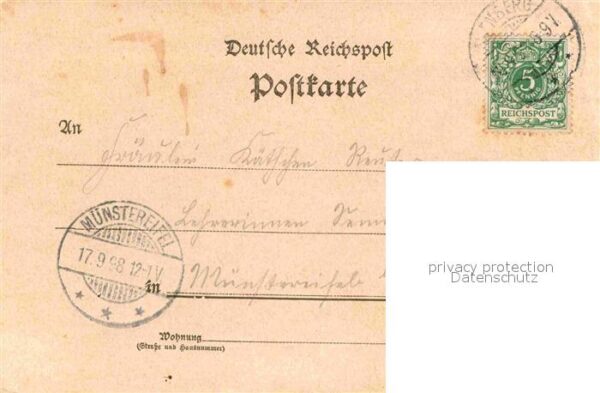 Deutsche Reichspost
Postkarte
5
REICHSPOST
An
Fräulein Käthchen
Lehrerinnen
MÜNSTEREIFEL
17.9.98 12-1V
in Münstereifel
privacy protection
Datenschutz
Wohnung
(Straße und Hausnummer)